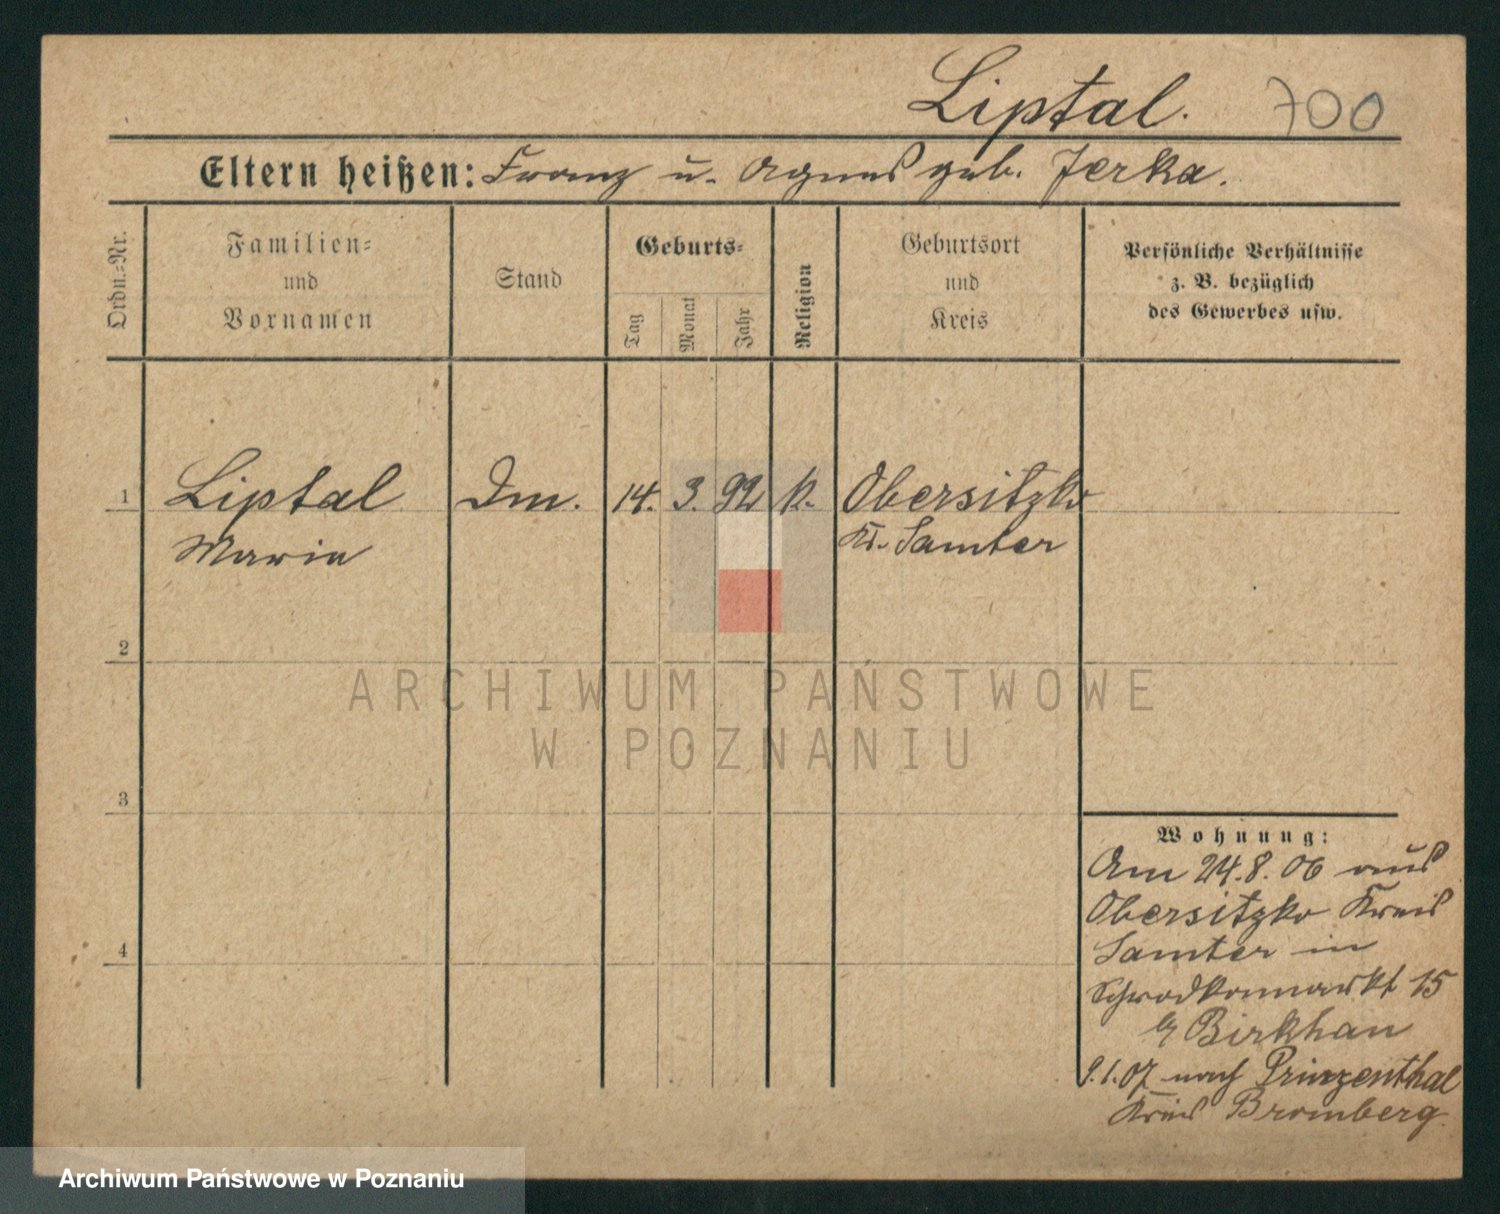 Liptal. 700
Eltern heißen: Franz u. Agnes geb. Jerka.
Ordn.-Nr.
Familien-
und
Vornamen
Stand
Geburts-
Tag
Monat
Jahr
Religion
Geburtsort
und
Kreis
Persönliche Verhältnisse
z. B. bezüglich
des Gewerbes usw.
1 Liptal Dm. 14. 3. 92 k. Obersitzko
Maria Kr. Samter
2
ARCHIWUM PAŃSTWOWE
W POZNANIU
3
Wohnung:
Am 24.8.06 aus
Obersitzko Kreis
4
Samter in
Schrodkamarkt 15
b/ Birkhan
9.1.07 nach Prinzenthal
Kreis Bromberg.
Archiwum Państwowe w Poznaniu